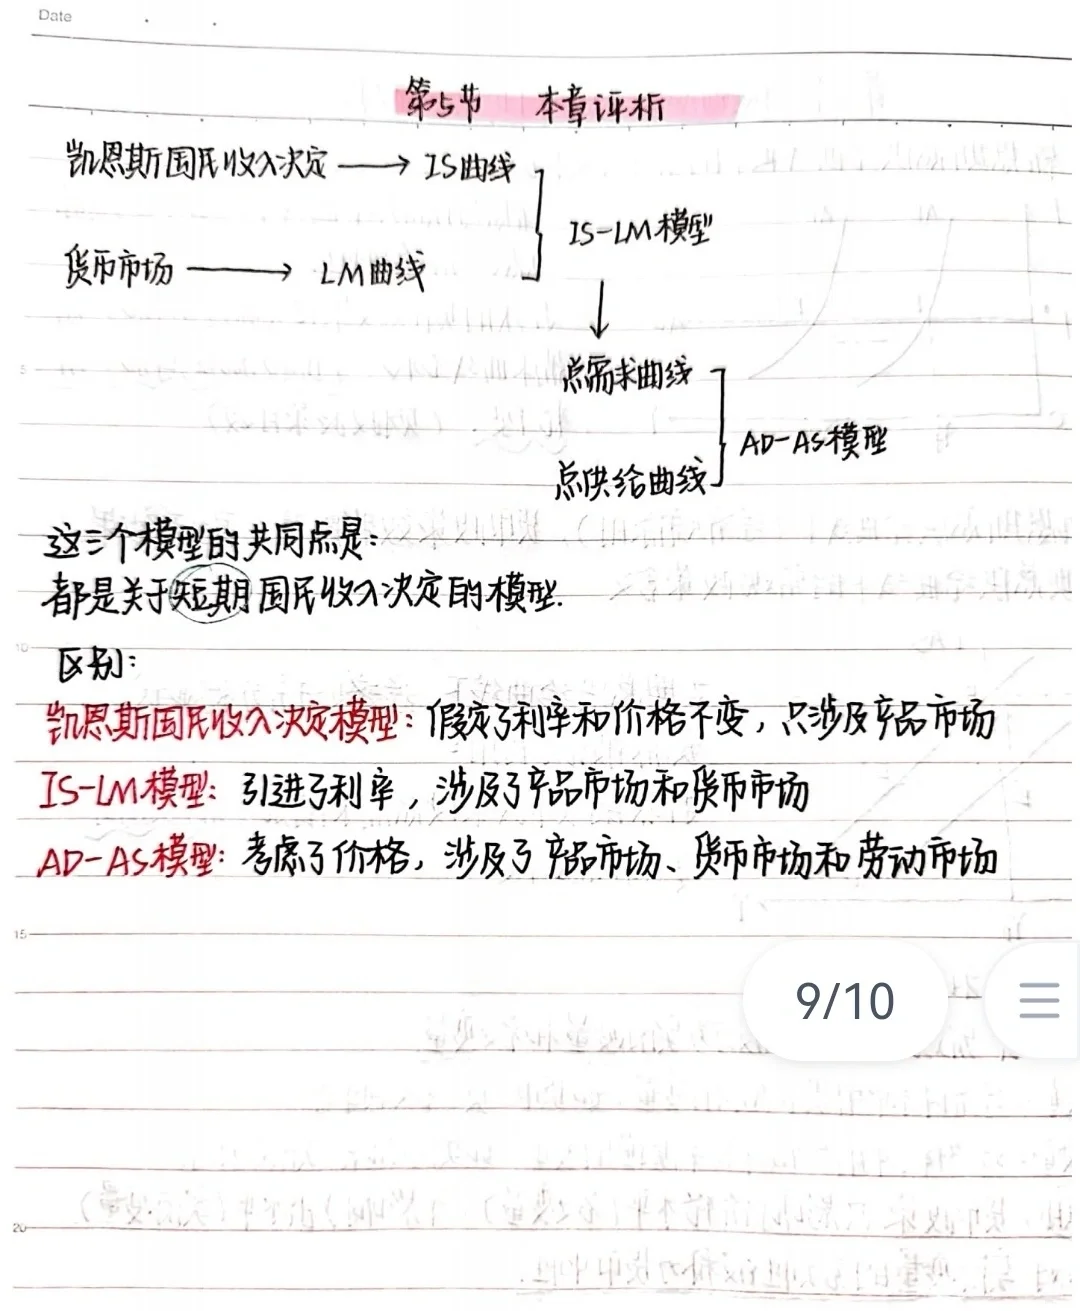 Date
第5节 本章评析
凯恩斯国民收入决定 → IS曲线
IS-LM模型
货币市场 → LM曲线
↓
总需求曲线
AD-AS模型
总供给曲线
这三个模型的共同点是:
都是关于短期国民收入决定的模型.
10
区别:
凯恩斯国民收入决定模型: 假定了利率和价格不变, 只涉及产品市场
IS-LM模型: 引进了利率, 涉及了产品市场和货币市场
AD-AS模型: 考虑了价格, 涉及了产品市场、货币市场和劳动市场
15
9/10
20